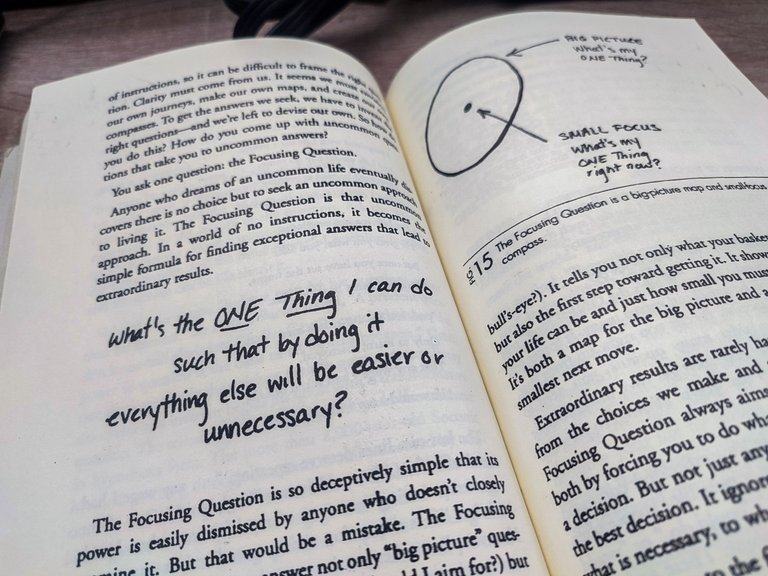 of instructions, so it can be difficult to frame the right
tion. Clarity must come from us. It seems we must
our own journeys, make our own maps, and create our
compasses. To get the answers we seek, we have to invent
right questions—and we're left to devise our own. So how
you do this? How do you come up with uncommon
tions that take you to uncommon answers?
You ask one question: the Focusing Question.
Anyone who dreams of an uncommon life eventually
covers there is no choice but to seek an uncommon approach
to living it. The Focusing Question is that uncommon
approach. In a world of no instructions, it becomes the
simple formula for finding exceptional answers that lead to
extraordinary results.
What's the ONE Thing I can do
such that by doing it
everything else will be easier or
unnecessary?
The Focusing Question is so deceptively simple that its
power is easily dismissed by anyone who doesn't closely
mine it. But that would be a mistake. The Focusing
nswer not only "big picture" ques-
ld I aim for?) but
BIG PICTURE
What's my
ONE Thing?
SMALL FOCUS
What's my
ONE Thing
right now?
15 The Focusing Question is a big-picture map and small-focus
compass.
bull's-eye?). It tells you not only what your basket
but also the first step toward getting it. It shows
your life can be and just how small you must
It's both a map for the big picture and a
smallest next move.
Extraordinary results are rarely ha
from the choices we make and
Focusing Question always aims
both by forcing you to do wha
a decision. But not just any
the best decision. It ignore
what is necessary, to wh